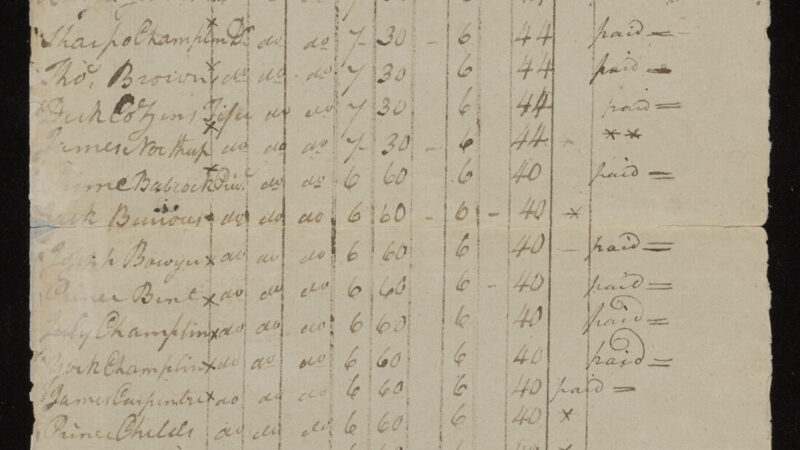 Sharpo Champlin Dr do do 7 30 - 6 44 paid =
Thos Brown x do do do 7 30 6 44 paid =
Dick Cozzens Fifer do do 7 30 6 44 paid =
James Northup x do do do 7 30 - 6 44 - **
Prime Babcock Priv. do do 6 60 6 40 paid =
do do do 6 60 - 6 - 40 x
Joseph Bowyer x do do do 6 60 6 40 - paid =
Prince Bent x do do do 6 60 6 - 40 paid =
July Champlin x do do do 6 60 6 40 paid =
York Champlin x do do do 6 60 6 40 paid =
James Carpenter x do do do 6 60 6 40 paid =
Prince Childs do do do 6 60 6 40 x